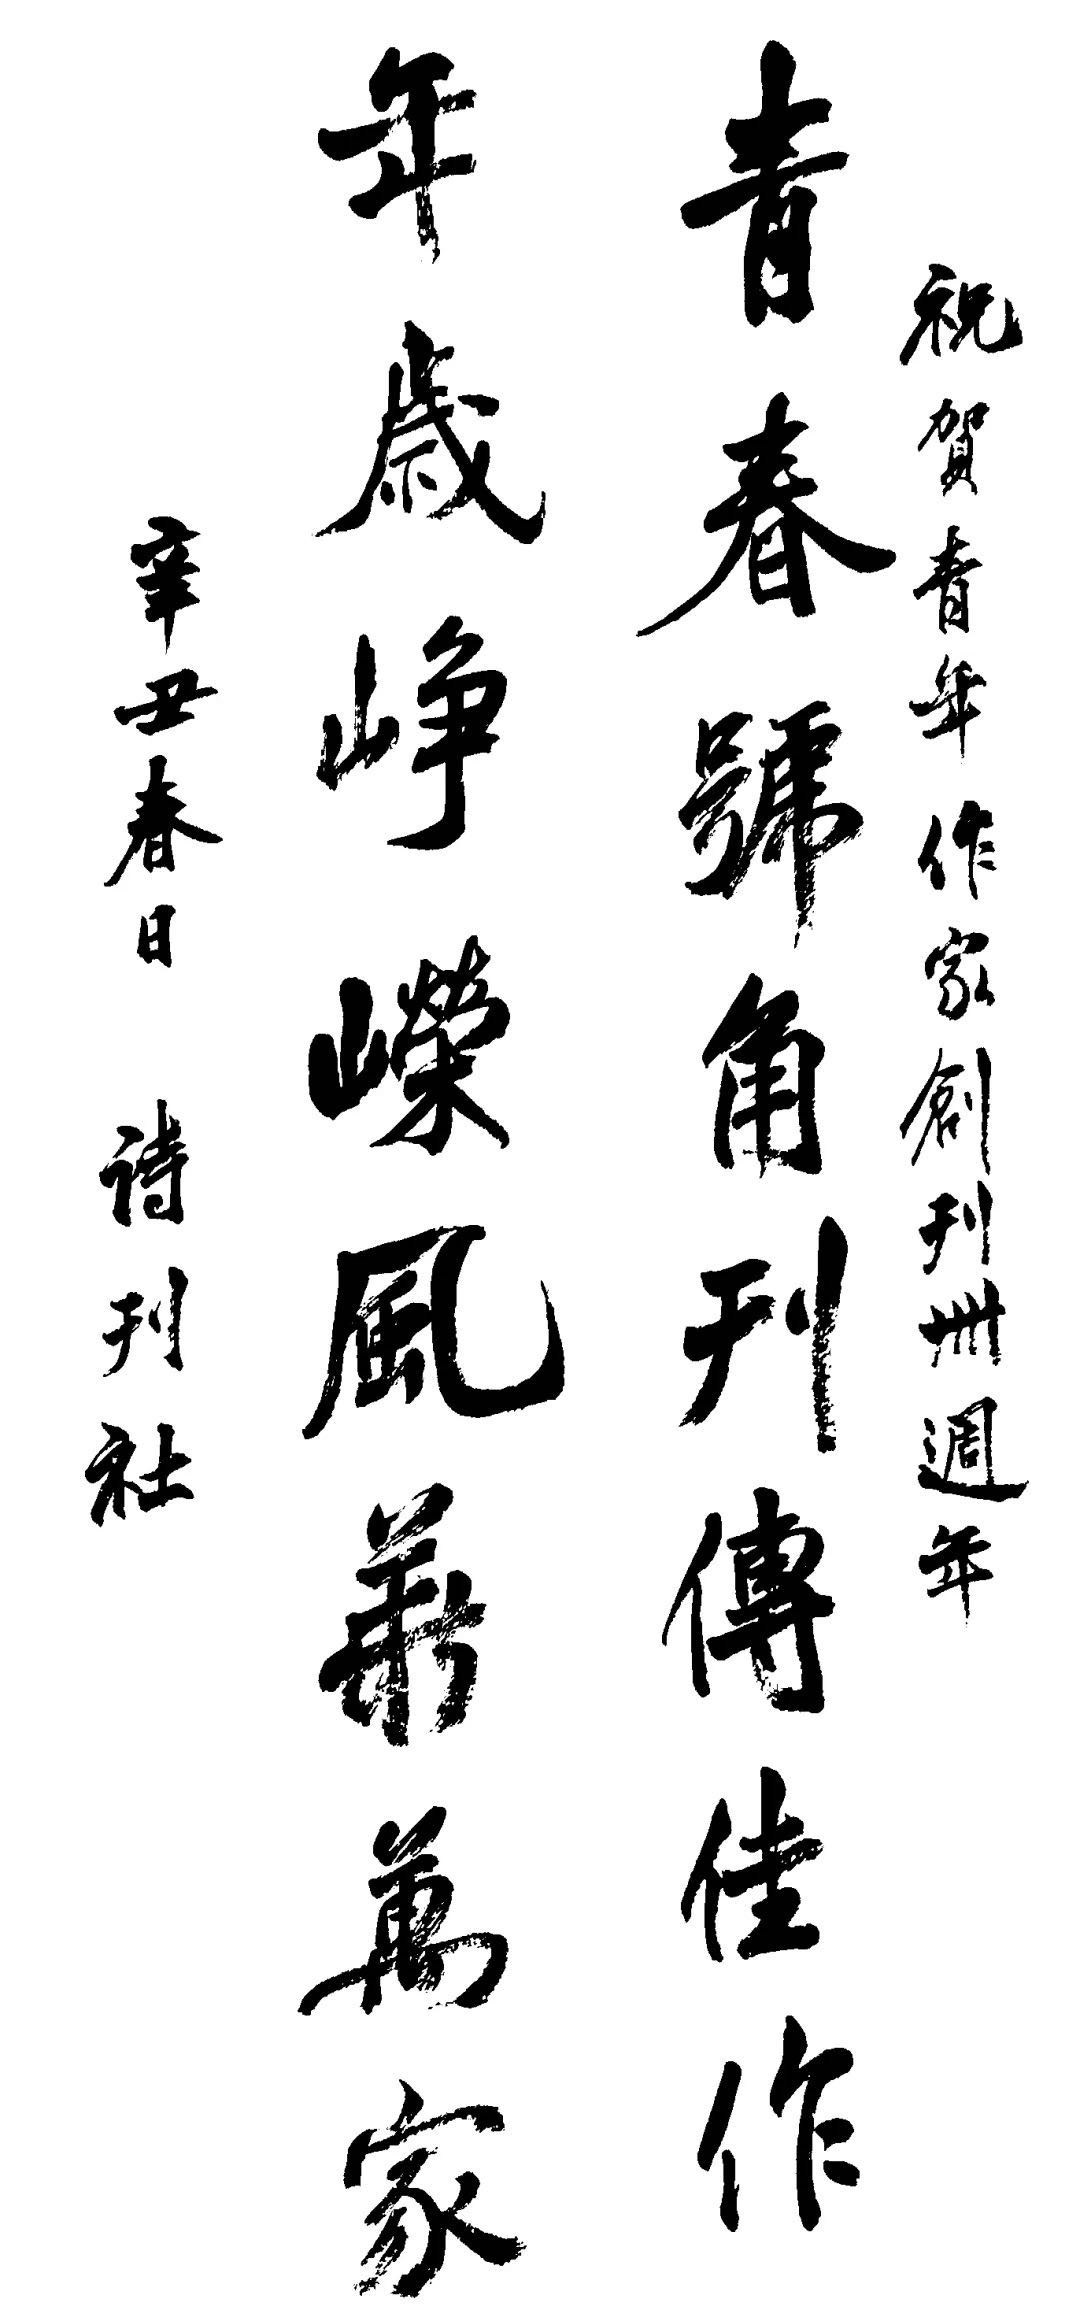 祝賀青年作家創刊卌週年
青春號角刊傳佳作
年歲崢嶸風華萬家
辛丑春日 詩刊社